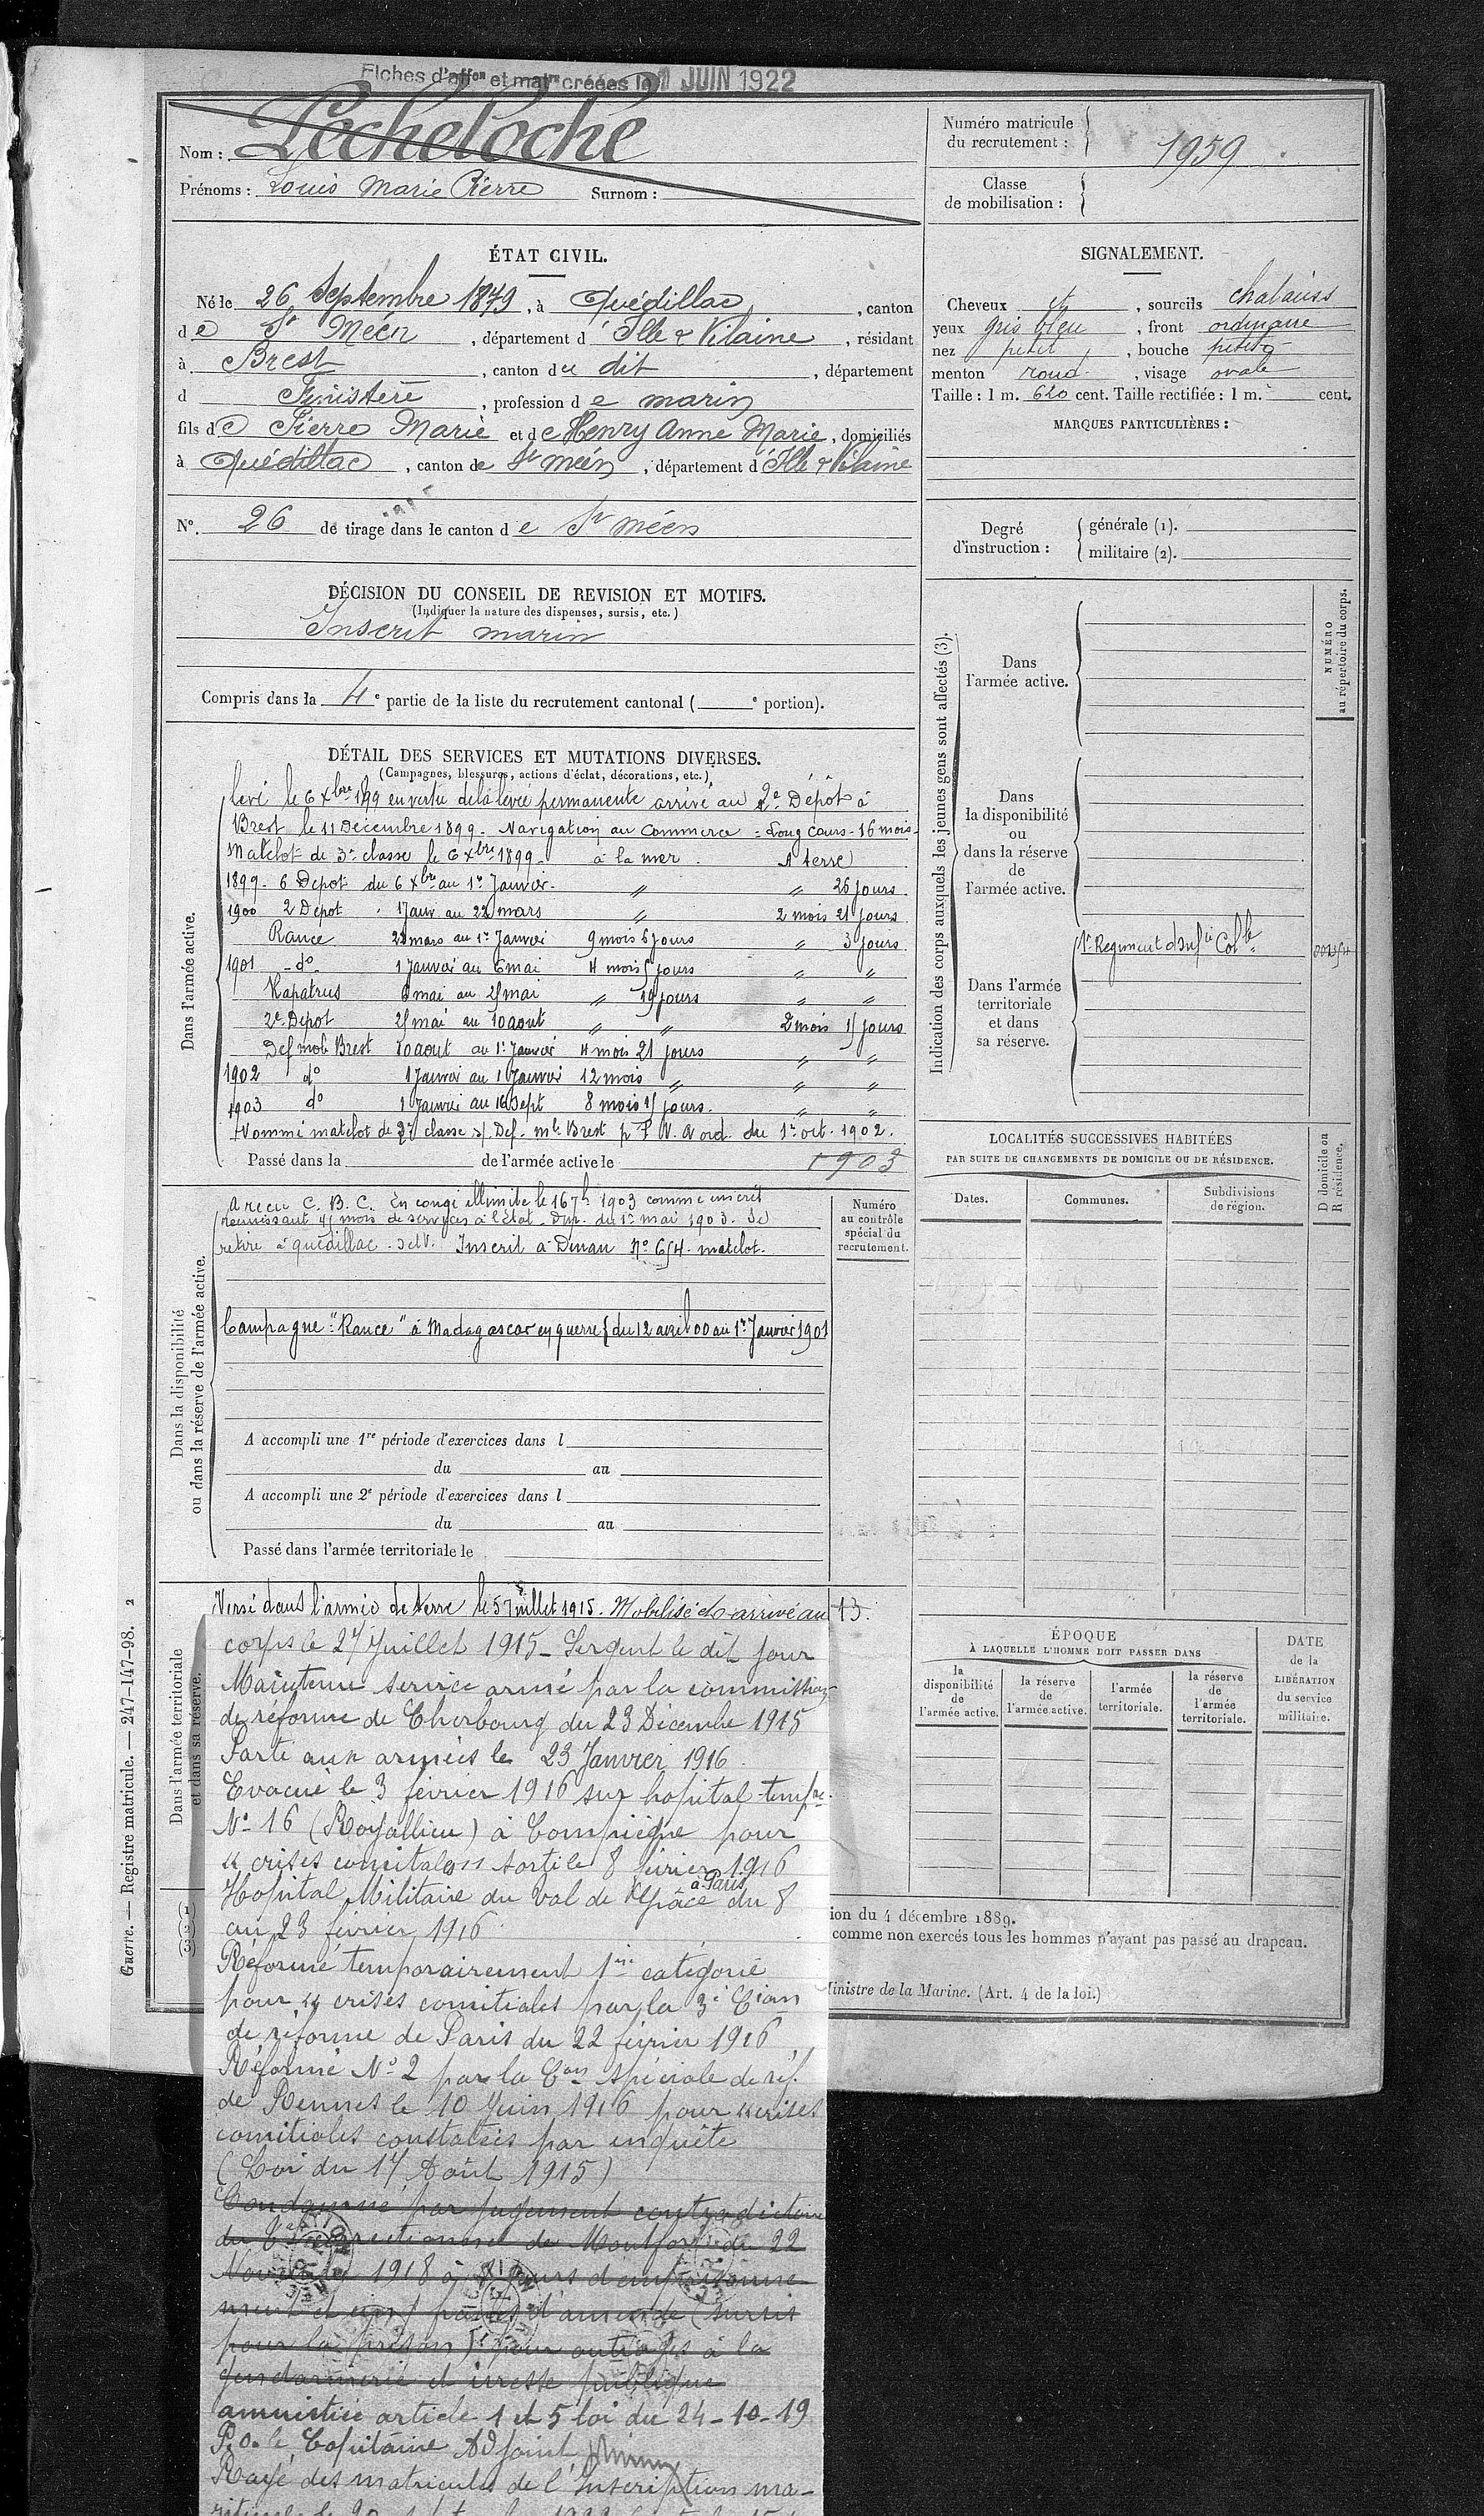 Fiches d'affon et matre créées le 1 JUIN 1922
Nom : Pechetoché
Prénoms : Louis Marie Pierre Surnom :
Numéro matricule du recrutement : 1959
Classe de mobilisation :
ÉTAT CIVIL.
Né le 26 Septembre 1879, à Quédillac, canton
de St Méen, département d'Ille & Vilaine, résidant
à Brest, canton du dit, département
d Finistère, profession de marin
fils de Pierre Marie et de Henry Anne Marie, domiciliés
à Quédillac, canton de St Méen, département d'Ille & Vilaine
N° 26 de tirage dans le canton de St Méen
DÉCISION DU CONSEIL DE REVISION ET MOTIFS.
(Indiquer la nature des dispenses, sursis, etc.)
Inscrit marin
Compris dans la 4e partie de la liste du recrutement cantonal ( e portion).
SIGNALEMENT.
Cheveux et, sourcils chatains
yeux gris bleu, front ordinaire
nez petit, bouche petite
menton rond, visage ovale
Taille : 1 m. 620 cent. Taille rectifiée : 1 m. cent.
MARQUES PARTICULIÈRES :
Degré d'instruction : générale (1).
militaire (2).
DÉTAIL DES SERVICES ET MUTATIONS DIVERSES.
(Campagnes, blessures, actions d'éclat, décorations, etc.)
Dans l'armée active.
levé le 6 Xbre 1899 en vertu de la levée permanente arrivé au 2e Dépôt à
Brest le 11 Décembre 1899 - Navigation au Commerce = Long cours - 16 mois -
Matelot de 3e classe le 6 Xbre 1899 - à la mer. A terre
1899 - 6 Depot du 6 Xbre au 1er Janvier - " " 26 jours
1900 2 Depot 1 Janv au 22 mars " 2 mois 21 jours
Rance 22 mars au 1er Janvier 9 mois 6 jours " 3 jours
1901 - do - 1 Janvier au 6 mai 4 mois 5 jours " "
6 mai au 25 mai " 19 jours " "
2e Depot 25 mai au 10 aout " " 2 mois 15 jours
Def mob Brest 10 aout au 1er Janvier 4 mois 21 jours " "
1902 do 1 Janvier au 1 Janvier 12 mois " " "
1903 do 1 Janvier au 16 Sept 8 mois 15 jours. " "
Nommé matelot de 2e classe s/ Def. mle Brest du 1er oct. 1902.
Passé dans la de l'armée active le 1903
Dans la disponibilité ou dans la réserve de l'armée active.
A reçu C. B. C. En congé illimité le 16 7bre 1903 comme inscrit
réunissant 45 mois de services à l'État. Dep. du 1er mai 1903. Se
retire à Quédillac. Inscrit à Dinan N° 654. matelot.
Campagne "Rance" à Madagascar en guerre { du 12 avril 00 au 1er Janvier 1901
A accompli une 1re période d'exercices dans l
du au
A accompli une 2e période d'exercices dans l
du au
Passé dans l'armée territoriale le
Numéro au contrôle spécial du recrutement.
Indication des corps auxquels les jeunes gens sont affectés (3).
NUMÉRO au répertoire du corps.
Dans l'armée active.
Dans la disponibilité ou dans la réserve de l'armée active.
Dans l'armée territoriale et dans sa réserve.
1er Régiment d'Infie Colle
LOCALITÉS SUCCESSIVES HABITÉES
PAR SUITE DE CHANGEMENTS DE DOMICILE OU DE RÉSIDENCE.
Dates. Communes. Subdivisions de région. D domicile ou R résidence.
Dans l'armée territoriale et dans sa réserve.
Versé dans l'armée de terre le 5 Juillet 1915. Mobilisé et arrivé au 13.
corps le 27 Juillet 1915 - Sergent le dit jour
Maintenu service armé par la commission
de réforme de Cherbourg du 23 Décembre 1915
Parti aux armées le 23 Janvier 1916
Evacué le 3 février 1916 sur hopital tempre
N° 16 (Royallieu) à Compiègne pour
"crises comitiales" sorti le 8 février 1916
Hopital Militaire du Val de Grâce à Paris du 8
au 23 février 1916
Réformé temporairement 1ère catégorie
pour "crises comitiales par la 3e Cion
de réforme de Paris du 22 février 1916
Réformé N° 2 par la Con spéciale de réf.
de Rennes le 10 Juin 1916 pour "crises
comitiales constatées par enquête
(Loi du 17 Août 1915)
Condamné par jugement contradictoire
du Tal correctionnel de Montfort du 22
Novembre 1918 à jours d'emprisonne-
ment et d'amende (sursis
pour la prison) pour outrages à la
gendarmerie et ivresse publique
amnistié article 1 et 5 loi du 24-10-19
P.o. le Capitaine Adjoint
Rayé des matricules de l'Inscription ma-
ÉPOQUE
À LAQUELLE L'HOMME DOIT PASSER DANS
la disponibilité de l'armée active.
la réserve de l'armée active.
l'armée territoriale.
la réserve de l'armée territoriale.
DATE de la LIBÉRATION du service militaire.
ion du 4 décembre 1889.
comme non exercés tous les hommes n'ayant pas passé au drapeau.
Ministre de la Marine. (Art. 4 de la loi.)
Guerre. — Registre matricule. — 247-147-98. 2